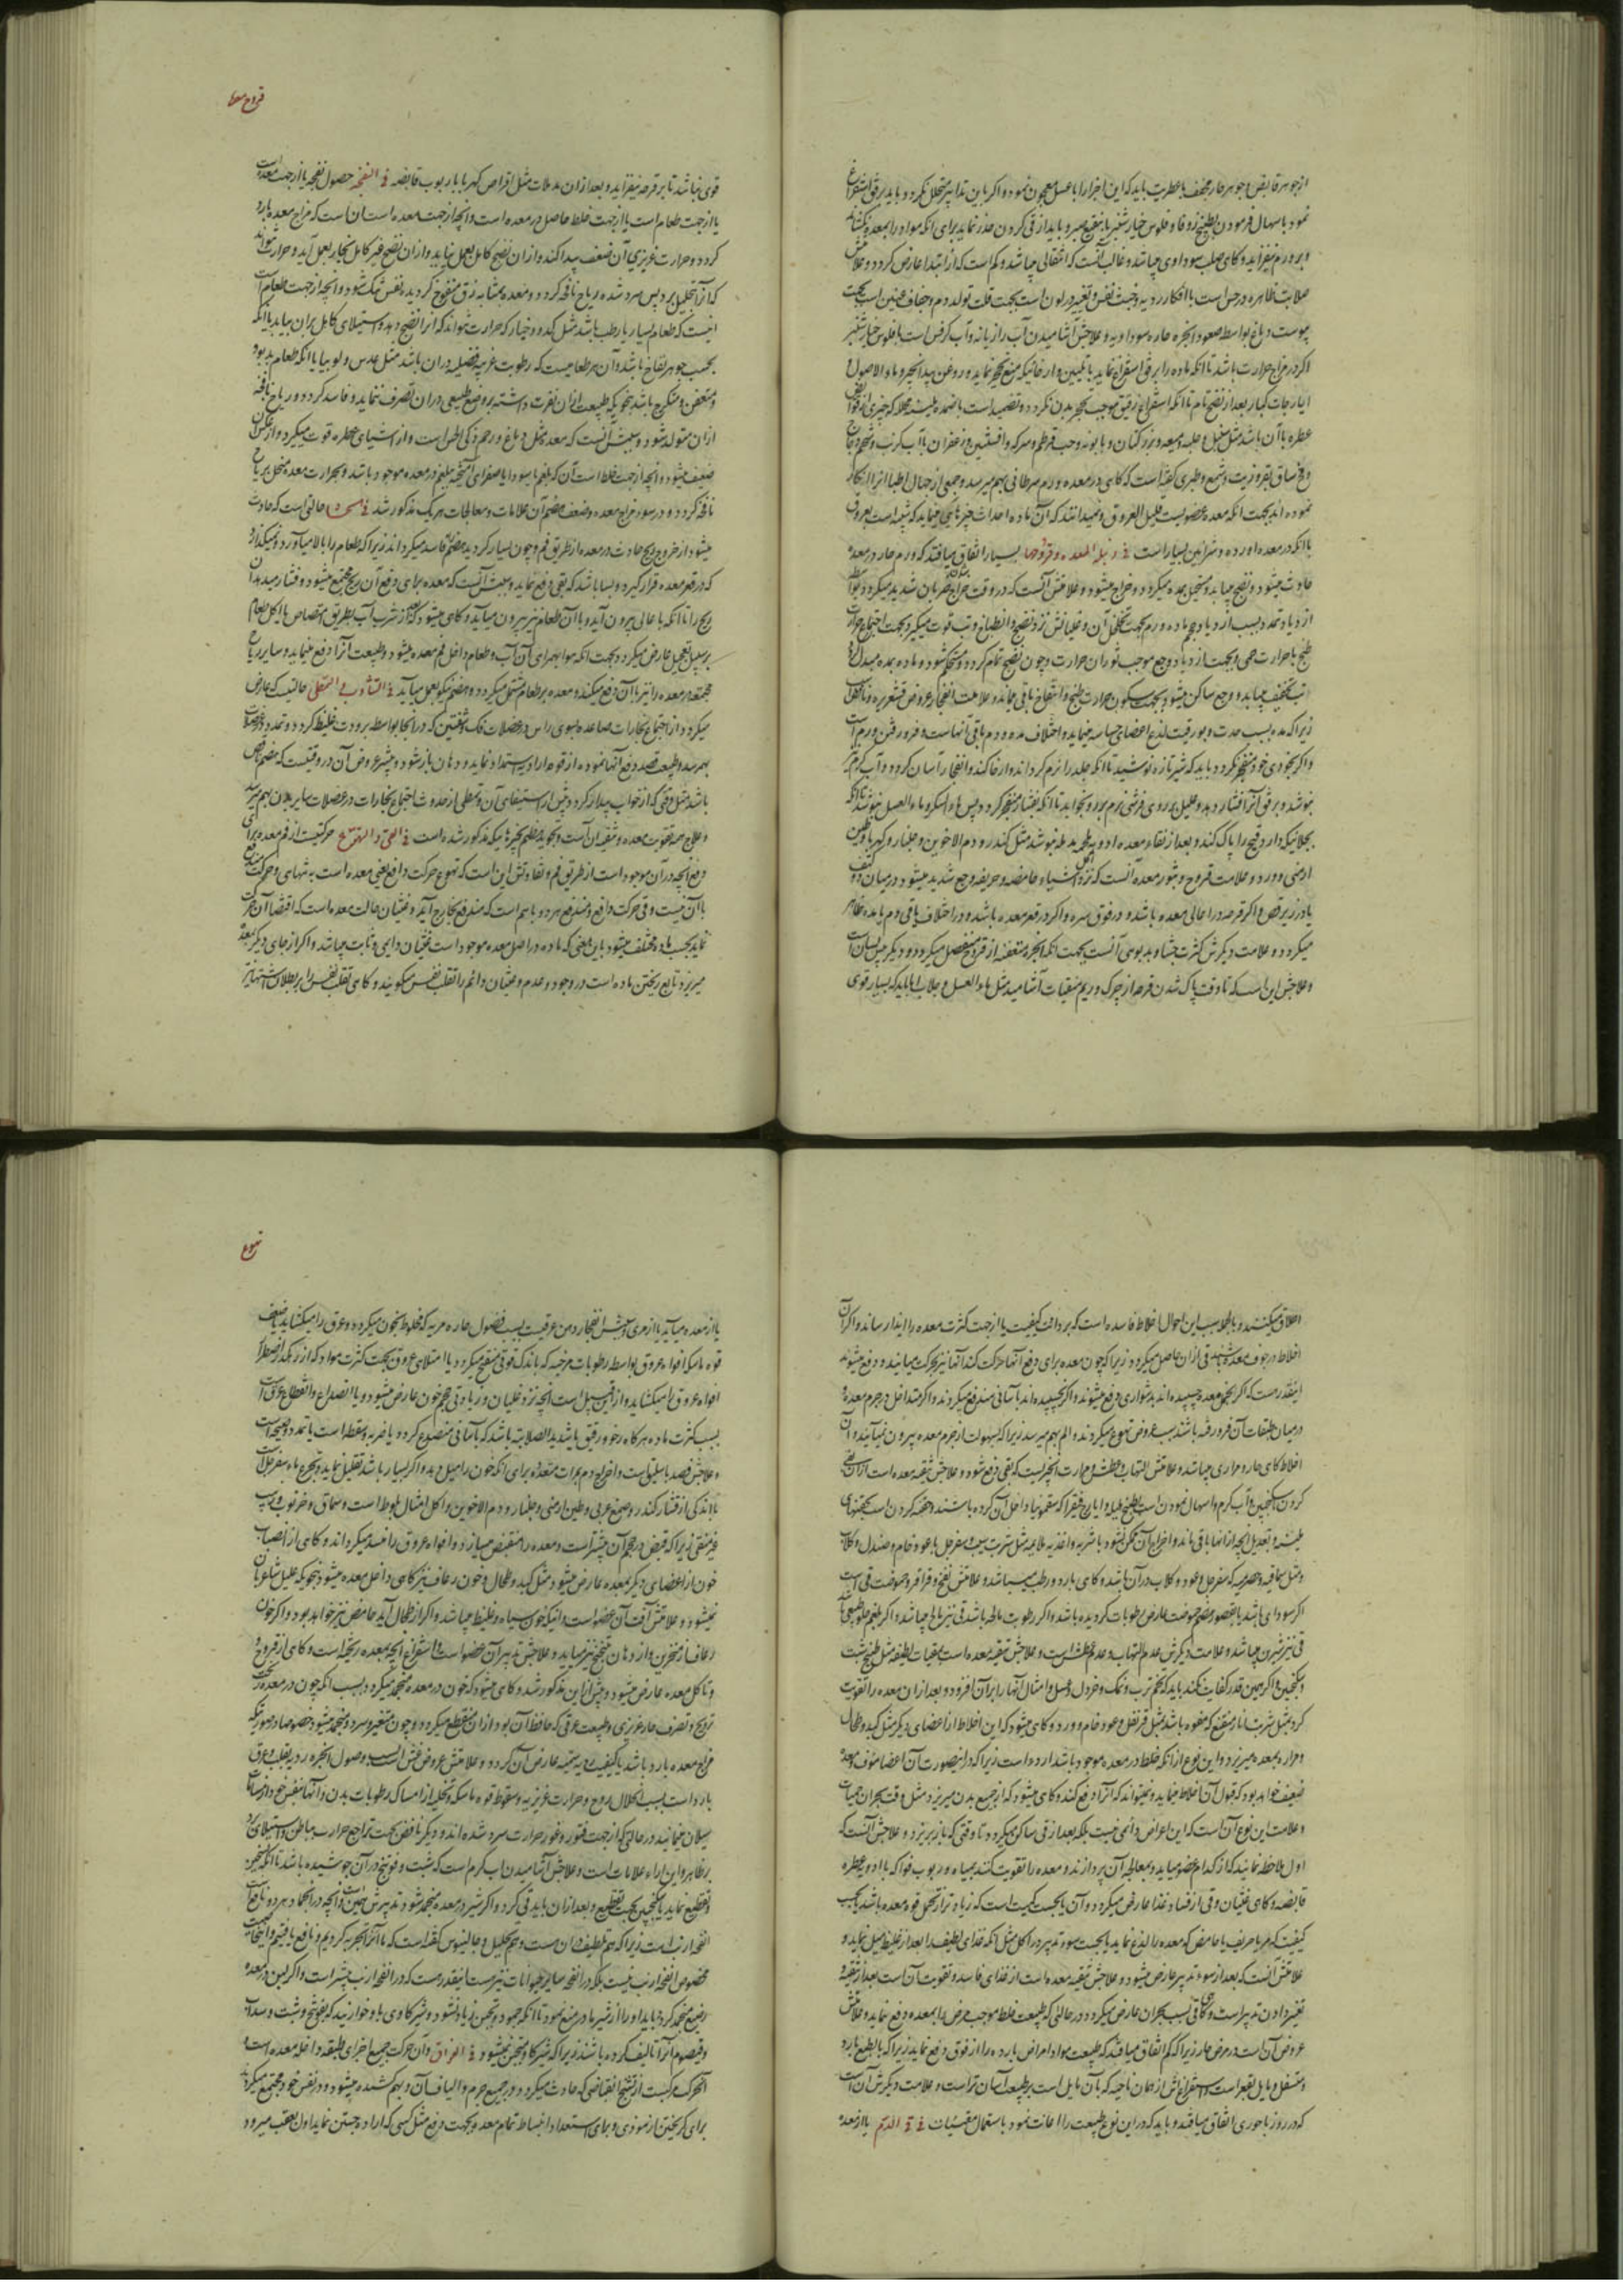 قروح معده
از جوهر قابض و جوهر حار مجفف با عطریت باید که این اجزا را با عسل معجون نمود و اگر باین تدابیر متحلل نگردد باید برفق استفراغ
نمود باسهال فرمودن بطبیخ زوفا و فلوس خیارشنبر با نقیع صبر و باید از قی کردن حذر نماید برای آنکه مواد را بمعده
و بر ورم بیفزاید و گاهی صلب سوداوی میباشد و غالب آنست که انتقالی میباشد و کم است که از ابتدا عارض گردد و علامتش
صلابت ظاهره در حس است با افکار ردیه و خبث نفس و تغییر در لون است بجهت قلت تولد دم و جفاف
یبوست دماغ بواسطه صعود ابخره حاره سوداویه و علاجش آشامیدن آب رازیانه و آب کرفس است با فلوس خیارشنبر
اگر در مزاج حرارت باشد تا آنکه ماده را برفق استفراغ نماید با تلیین و ارخائیکه منع تحجر نماید و روغن بیدانجیر و ماء الاصول
ایارجات کبار بعد از نضج تام تا آنکه استفراغ رقیق موجب تحجر بدن نگردد و تضمید است باضمده ملینه محلله که چیزی از
عطره با آن باشد مثل سنبل و حلبه و میعه و بزر کتان و بابونه و حب قرطم و سرکه و افسنتین و زعفران با آب کرنب و شحم دجاج
و مخ ساق بقر و زیت و شمع و طبری گفته است که گاهی در معده ورم سرطانی بهم میرسد و جمعی از جهال اطبا آنرا انکار
نموده اند بجهت آنکه معده عضویست قلیل العروق و نمیدانند که آن ماده احداث چیزهایی مینماید که شبیه است بعروق
با آنکه در معده اورده و شرائین بسیار است فی دبیلة المعده و قروحها بسیار اتفاق میافتد که ورم حار در معده
حادث میشود و نضج مییابد و متحیل بمده میگردد و خراج میشود و علامتش آنست که در وقت خراج ضربان شدید میگردد
ازدیاد تمدد بسبب ازدیاد حجم ماده ورم بجهت تخلخل آن و غلیانش نزد نضج و انطباخ و تب قوت میگیرد بجهت اجتماع حرارت
طبخ با حرارت حمی و بجهت ازدیاد وجع موجب ثوران حرارت و چون نضج تمام گردد و مستحکم شود و ماده بمده مبدل
تب تخفیف مییابد و وجع ساکن میشود بجهت سکون حرارت طبخ و انتفاخ باقی میماند و علامت انفجار عروض قشعریره و نافض
زیرا که مده بسبب حدت و بورقیت لذع اعضای حساسه مینماید و اختلاف مده و دم باقی آنهاست و فرو رفتن ورم است
و اگر بخودی خود منفجر نگردد باید که شیر تازه نوشید تا آنکه جلد را نرم گرداند و ارخا کند و انفجار آسان گردد و آب گرم
بنوشد و برفق آنرا افشار دهد و علیل بر روی فرشی نرم برو بخوابد تا آنکه بفشار منفجر گردد پس ماء السکر و ماء العسل بنوشد تا آنکه
بجلائیکه دارد قیح را پاک کند و بعد از نقاء معده ادویه ملحمه مدمله بنوشد مثل کندر و دم الاخوین و جلنار و کهربا و طین
ارمنی و ورد و علامت قروح و بثور معده آنست که نزد اکل اشیاء حامضه و حریفه وجع شدید میشود در میان دو کتف
یا در زیر قص و اگر قرحه در اعالی معده باشد و در فوق سره و اگر در قعر معده باشد و در اختلاف یا قی دم یا مده ظاهر
میگردد و علامت دیگرش کثرت جشاء و بدبوئی آنست بجهت آنکه ابخره متعفنه از قرح منفصل میگردد و دیگر یبس لسان است
و علاجش این است که تا وقت پاک شدن قرحه از چرک و ریم منقیات آشامید مثل ماء العسل و جلاب اما باید که بسیار قوی
قوی نباشد تا بر قرحه بیفزاید و بعد از آن مدملات مثل اقراص کهربا با ربوب قابضه فی النفخه حصول نفخه یا از جهت معده است
یا از جهت طعام است یا از جهت خلط حاصل در معده است و آنچه از جهت معده است آن است که مزاج معده بارد
گردد و حرارت غریزی آن ضعف پیدا کند و از آن نضج کامل بعمل نیاید و از آن نضج غیر کامل بخار بعمل آید و حرارت نتواند
که آنرا تحلیل برد پس سرد شده ریاح نافخه گردد و معده بمثابه زق منفوخ گردیده نفس تنگ شود و آنچه از جهت طعام است
اینست که طعام بسیار یا رطب باشد مثل کدو و خیار که حرارت نتواند که آنرا نضج دهد و استیلای کامل بر آن بیابد یا آنکه
بحسب جوهر نفاخ باشد و آن هر طعامیست که رطوبت غریبه فضلیه در آن باشد مثل عدس و لوبیا یا آنکه طعام بدبو
و متعفن و متکرج باشد بنحویکه طبیعت از آن نفرت داشته بر وضع طبیعی در آن تصرف ننماید و فاسد گردد و ریاح نافخه
از آن متولد شود و سببش آنست که معده مثل دماغ و رحم ذکی الحس است و از اشیای عطره قوت میگیرد و از عکس آن
ضعیف میشود و آنچه از جهت خلط است آن که بلغم یا سودا یا صفرای آمیخته ببلغم در معده موجود باشد و بحرارت معده منحل بریاح
نافخه گردد و در سوء مزاج معده و ضعف هضم آن علامات و معالجات هر یک مذکور شد فی الجشاء حالتی است که حادث
میشود از خروج ریح حادث در معده از طریق فم و چون بسیار گردد هضم را فاسد میگرداند زیرا که طعام را بالا میآورد و نمیگذارد
که در قعر معده قرار گیرد و بسا باشد که بقی دفع نماید و سببش آنست که معده برای دفع آن ریح مجتمع میشود و فشار میدهد آن
ریح را تا آنکه باعالی بیرون آید و با آن طعام نیز بیرون میآید و گاهی میشود که از شرب آب بطریق امتصاص یا اکل طعام
بر سبیل تعجیل عارض میگردد بجهت آنکه هوا بهمراهی آن آب و طعام داخل فم معده میشود و طبیعت آنرا دفع مینماید و سایر ریاح
مجتمعه در معده را نیز با آن دفع میکند و معده بر طعام مشتمل میگردد و هضم نیکو بعمل میآید فی التثاؤب و التمطی حالتیست که عارض
میگردد از اجتماع بخارات صاعده بسوی راس در عضلات فک و شفتین که در آنجا بواسطه برودت غلیظ گردد و تمدد در عضلات
بهم رسد و طبیعت قصد دفع آنها نموده از قوه ارادیه استمداد نماید و دهان باز شود و بیشتر عروض آن در وقتیست که هضم ناقص
باشد مثل وقتی که از خواب بیدار گردد پیش از استیفای آن و تمطی از حدوث اجتماع بخارات در عضلات سایر بدن بهم میرسد
و علاج همه تقویت معده و تنقیه آن است و تجوید هضم بچیزهاییکه مذکور شده است فی القی و التهوع حرکتیست از فم معده برای
دفع آنچه در آن موجود است از طریق فم و تفاوتش این است که تهوع حرکت دافع یعنی معده است به تنهایی و حرکت مندفع
با آن نیست و قی حرکت دافع و مندفع هر دو با هم است که مندفع بخارج آید و غثیان حالت معده است که اقتضا آن حرکت
نماید بحسب ماده مختلف میشود باین معنی که ماده در اصل معده موجود است غثیان دایمی و ثابت میباشد و اگر از جای دیگر بمعده
میریزد تابع ریختن ماده است در وجود و عدم و غثیان دائم را تقلب نفس میگویند و گاهی تقلب نفس را بر بطلان اشتها نیز
تهوع
اطلاق میکنند و بالجمله سبب این احوال اخلاط فاسده است که بردائت کیفیت یا از جهت کثرت معده را ایذا رساند و اگر آن
اخلاط در جوف معده باشد قی از آن حاصل میگردد زیرا که چون معده برای دفع آنها حرکت کند آنها نیز بحرکت میآیند و دفع میشوند
اینقدر هست که اگر بخمل معده چسبیده اند بدشواری دفع میشوند و اگر نچسبیده اند بآسانی مندفع میگردند و اگر متداخل در جرم معده
در میان طبقات آن فرو رفته باشد سبب عروض تهوع میگردند و الم بهم میرسد زیرا که بسهولت از جرم معده بیرون نمیآیند و آن
اخلاط گاهی حار و مراری میباشد و علامتش التهاب و عطش و مرارت آنچیزیست که بقی دفع شود و علاجش تنقیه معده است از آن بقی
کردن بسکنجبین و آب گرم و اسهال نمودن است بطبیخ هلیله و ایارج فیقرا که سقمونیا داخل آن کرده باشند و حقنه کردن است بحقنهای
لینه و تعدیل آنچه از آنها باقی ماند و اخراج آن ممکن نشود باشربه و اغذیه ملایمه مثل شربت سیب و سفرجل با عود خام و صندل و گلاب
و مثل سماقیه و حصرمیه که سفرجل و عود و گلاب در آن باشد و گاهی بارد و رطب میباشد و علامتش نفخ و قراقر و حموضت قی است
اگر سوداوی باشد یا بقصور هضم حموضت عارض رطوبات گردیده باشد و اگر رطوبت مالحه باشد قی نیز مالح میباشد و اگر بلغم حلو طبیعی باشد
قی نیز شیرین میباشد و علامت دیگرش عدم التهاب و عدم عطش است و علاجش تنقیه معده است بمقیات لطیفه مثل طبیخ شبت
و سکنجبین و اگر همین قدر کفایت نکند باید که تخم ترب و نمک و خردل و عسل و امثال آنها را بر آن افزود و بعد از آن معده را تقویت
کرد بمثل شربت انار منعنع که مفوه باشد بمثل قرنفل و عود خام و ورد و گاهی میشود که این اخلاط از اعضای دیگر مثل کبد و طحال
و مراره بمعده میریزد و این نوع از آنکه خلط در معده موجود باشد اردء است زیرا که در اینصورت آن اعضا مؤوف و معده
ضعیف خواهد بود که قبول آن اخلاط مینماید و نمیتواند که آنرا دفع کند و گاهی میشود که از جمیع بدن میریزد مثل وقت بحران حمیات
و علامت این نوع آن است که این اعراض دائمی نیست بلکه بعد از قی ساکن میگردد تا وقتی که باز بریزد و علاجش آنست که
اول ملاحظه نمایند که از کدام عضو میآید و بمعالجه آن پردازند و معده را تقویت کنند بمیاه و ربوب فواکه با ادویه عطره
قابضه و گاهی غثیان و قی از فساد غذا عارض میگردد و آن یا بحسب کمیت است که زیاده از تحمل قوه معده باشد یا بحسب
کیفیت که مر یا حریف یا حامض که معده را لذع نماید یا بجهت سوء تدبیر در اکل مثل آنکه غذای لطیف را بعد از غلیظ میل نماید و
علامتش آنست که بعد از سوء تدبیر عارض میشود و علاجش تنقیه معده است از غذای فاسد و تقویت آن است بعد از تنقیه و
تغییر دادن تدبیر است و گاهی قی بسبب بحران عارض میگردد در حالتی که طبیعت خلط موجب مرض را بمعده دفع نماید و علامتش
عروض آن است در مرض حار زیرا که کم اتفاق میافتد که طبیعت مواد امراض بارده را از فوق دفع نماید زیرا که بالطبع بارد
و متسفل و مایل بقعر است و استفراغش از همان ناحیه که بآن مایل است بر طبیعت آسان تر است و علامت دیگرش آن است
که در روز باحوری اتفاق میافتد و باید که در این نوع طبیعت را اعانت نمود باستعمال مقیئات فی قی الدم یا از معده
یا از معده میآید یا از مری و سببش انفجار دهن عرقیست بسبب فضول حاره مریه که مخلوط بخون میگردد و عرق را میگشاید یا ضعف
قوه ماسکه افواه عروق بواسطه رطوبات مرخیه که باندک قوتی منفتح میگردد یا امتلای عروق بجهت کثرت مواد که از زیادتی اضطرارا
افواه عروق را میگشاید و از این قبیل است آنچه نزد غلیان و زیادتی حجم خون عارض میشود و یا انصداع و انقطاع عرق است
بسبب کثرت ماده هرگاه رخو و رقیق یا شدید الصلابه باشد که بآسانی منصدع گردد یا ضربه و سقطه است یا تمدد و صیحه است
و علاجش فصد باسلیق است و اخراج دم بمرات متعدده برای آنکه خون را میل دهد و اگر بسیار باشد تقلیل نماید و تجرع ماء سفرجل است
با اندکی از قشار کندر و صمغ عربی و طین ارمنی و جلنار و دم الاخوین و اکل امثال بلوط است و سماق و خرنوب و سیب
غیر منقی زیرا که قبض در عجم آن بیشتر است و معده را منقبض میسازد و افواه عروق را منسد میگرداند و گاهی از انصباب
خون از اعضای دیگر بمعده عارض میشود مثل کبد و طحال و خون رعاف نیز گاهی داخل معده میشود بنحویکه علیل شاعر بآن
نمیشود و علامتش آفت آن عضو است و اینکه خون سیاه و غلیظ میباشد و اگر از طحال آید حامض نیز خواهد بود و اگر خون
رعاف از منخرین و از دهان بتنخنح نیز میآید و علاجش تدبیر آن عضو است و استفراغ آنچه بمعده ریخته است و گاهی از قروح
و تاکل معده عارض میشود و پیش از این مذکور شد و گاهی میشود که خون در معده منجمد میگردد بسبب آنکه چون در معده ریخت
ترویح و تصرف حار غریزی و طبیعت عرقی که حافظ آن بود از آن منقطع میگردد و چون متغیر و سرد و منجمد میشود خصوصا در صورتیکه
مزاج معده بارد باشد یا کیفیت ردیه سمیه عارض آن گردد و علامتش عروض غشی است بسبب وصول ابخره ردیه بقلب و عرق
بارد است بسبب انحلال روح و حرارت غریزیه و سقوط قوه ماسکه و تخلیه از امساک رطوبات بدن و آنها بنفس خود از مسامات
سیلان مینمایند در حالتی که از جهت فتور و غور حرارت سرد شده اند و دیگر نافض بجهت تراجع حرارت بباطن و استیلای برد
بر ظاهر و این اردء علامات است و علاجش آشامیدن آب گرم است که شبت و فودنج در آن جوشیده باشد تا آنکه تسخین
و تقطیع نماید یا سکنجبین بجهت تقطیع و بعد از آن باید قی کرد و اگر شیر در معده منجمد شود تدبیرش همین است و آنچه در انجماد هر دو نافع است
انفحه ارنب است زیرا که هم تلطیف در آن هست و هم تحلیل و جالینوس گفته است که ما آنرا تجربه کردیم و نافع یافتیم و این خاصیت
مخصوص انفحه ارنب نیست بلکه در انفحه سایر حیوانات نیز هست اینقدر هست که در انفحه ارنب بیشتر است و اگر لبن در معده
رضیع منجمد گردد باید او را از شیر مادر منع نمود تا آنکه جمود و تجبن زیاد نشود و شیر گاوی باو خورانید که بفوتنج و شبت و سداب
و قیصوم آنرا تالیف کرده باشند زیرا که شیر گاو متجبن نمیشود فی الفواق و آن حرکت جمیع اجزای طبقه داخله معده است و
آن حرکت مرکبست از تشنج انقباضی که حادث میگردد در جمیع جرم و الیاف آن و بهم کشیده میشود و در نفس خود مجتمع میگردد
برای گریختن از موذی و برای استعداد انبساط تمام معده بجهت دفع مثل کسی که اراده جستن نماید اول بعقب میرود